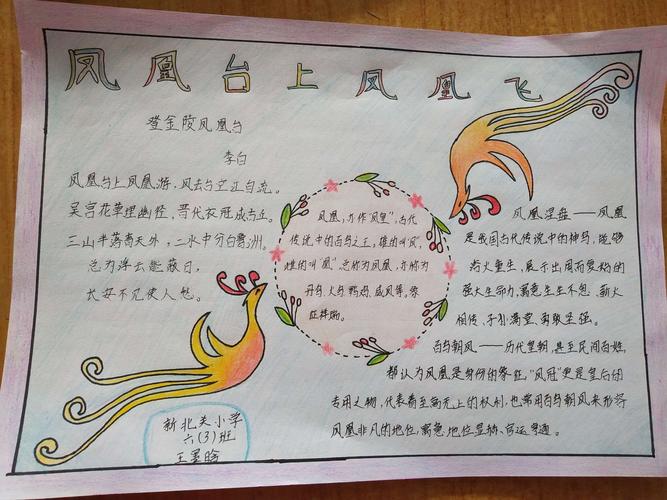 凤凰台上凤凰飞
登金陵凤凰台
李白
凤凰台上凤凰游，凤去台空江自流。
吴宫花草埋幽径，晋代衣冠成古丘。
三山半落青天外，二水中分白鹭洲。
总为浮云能蔽日，
长安不见使人愁。
凤凰，亦作“凤皇”，古代
传说中的百鸟之王，雄的叫“凤”，
雌的叫“凰”总称为凤凰，亦称为
丹鸟、火鸟、鹍鸡、威凤等，象
征祥瑞。
凤凰涅槃——凤凰
是我国古代传说中的神鸟，能够
浴火重生，展示出周而复始的
强大生命力，寓意生生不息、薪火
相传、子孙满堂、勇敢坚强。
百鸟朝凤——历代皇朝，甚至民间百姓，
都认为凤凰是身份的象征，“凤冠”更是皇后的
专用之物，代表着至高无上的权利，也常用百鸟朝凤来形容
凤凰非凡的地位，寓意地位显赫、官运亨通。
新北关小学
六（3）班
王墨晗